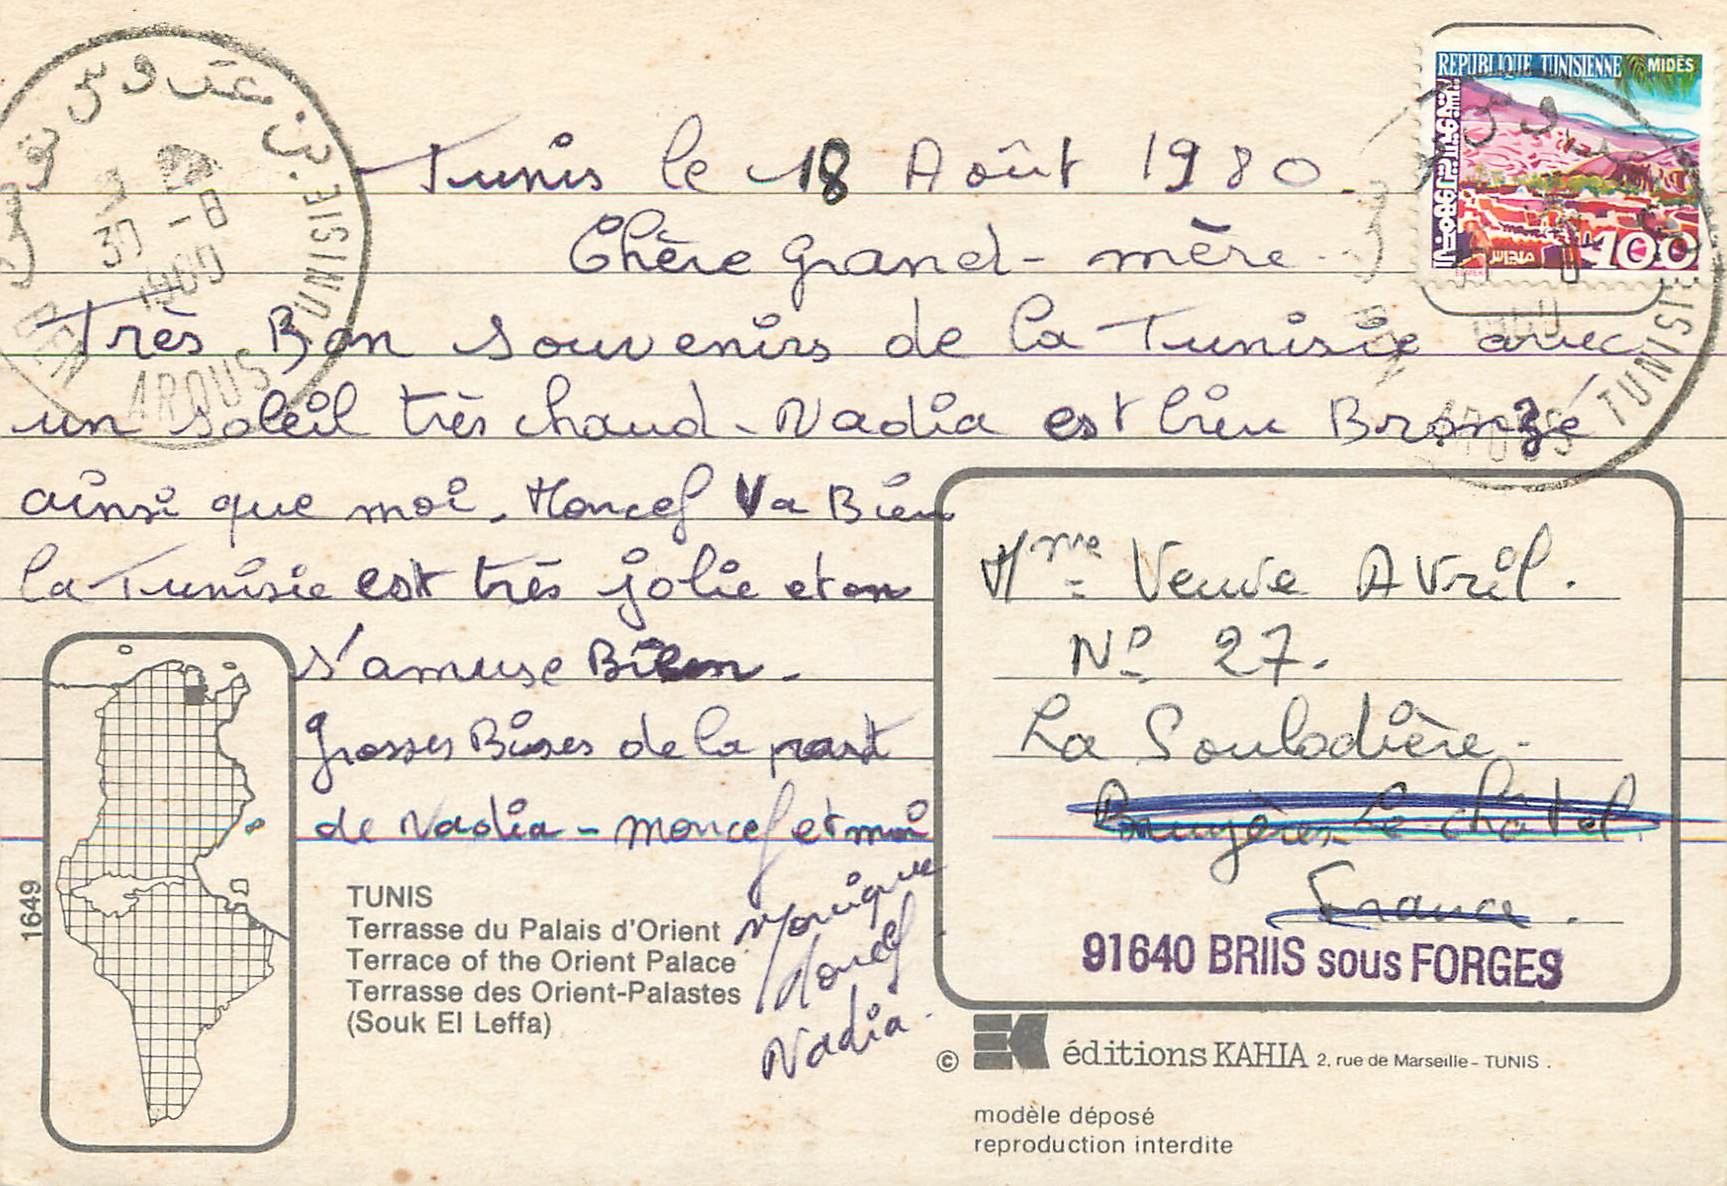 Tunis le 18 Août 1980.
Chère Grand-mère.
Très Bon souvenirs de la Tunisie avec
un soleil très chaud - Nadia est bien Bronzé
ainsi que moi. Moncef Va Bien
la Tunisie est très jolie et on
s'amuse Bien.
Grosses Bises de la part
de Nadia - Moncef et moi
Monique
Moncef
Nadia.
REPUBLIQUE TUNISIENNE MIDÈS
100
BEN AROUS TUNISIE
1980
TUNISIE
Mme Veuve Avril.
No 27.
La Soulodière.
Bruyères Le Châtel.
France.
91640 BRIIS sous FORGES
1649
TUNIS
Terrasse du Palais d'Orient
Terrace of the Orient Palace
Terrasse des Orient-Palastes
(Souk El Leffa)
© éditions KAHIA 2, rue de Marseille - TUNIS .
modèle déposé
reproduction interdite